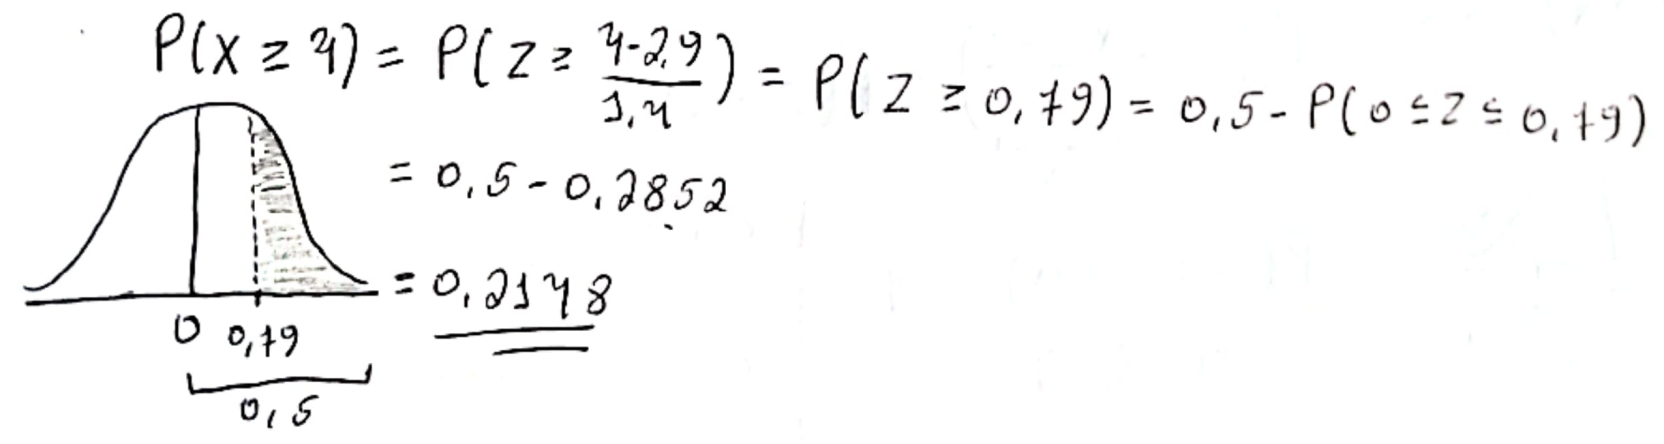 P(X ≥ 4) = P(Z ≥ 4-2,9/1,4) = P(Z ≥ 0,79) = 0,5 - P(0 ≤ Z ≤ 0,79)
= 0,5 - 0,2852
= 0,2148
0 0,79
0,5